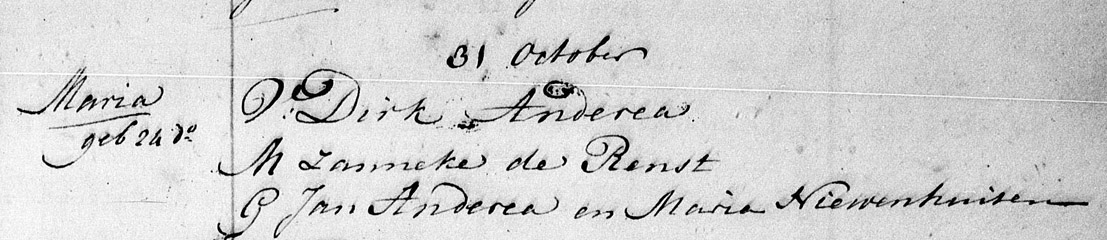 31 October
Maria
geb 24 do
V: Dirk Anderea
M Janneke de Renst
G Jan Anderea en Maria Niewenhuisen